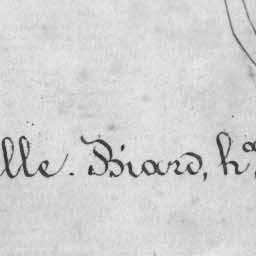 lle. Biard, hª,